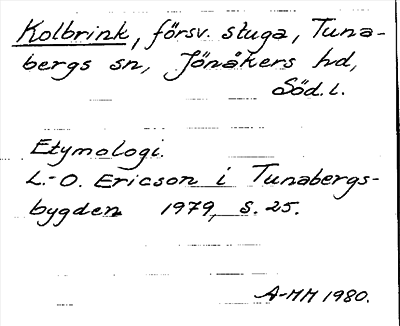 Kolbrink, försv. stuga, Tuna-
bergs sn, Jönåkers hd,
Söd. l.
Etymologi.
L.-O. Ericson i Tunabergs-
bygden 1979, s. 25.
A-MM 1980.